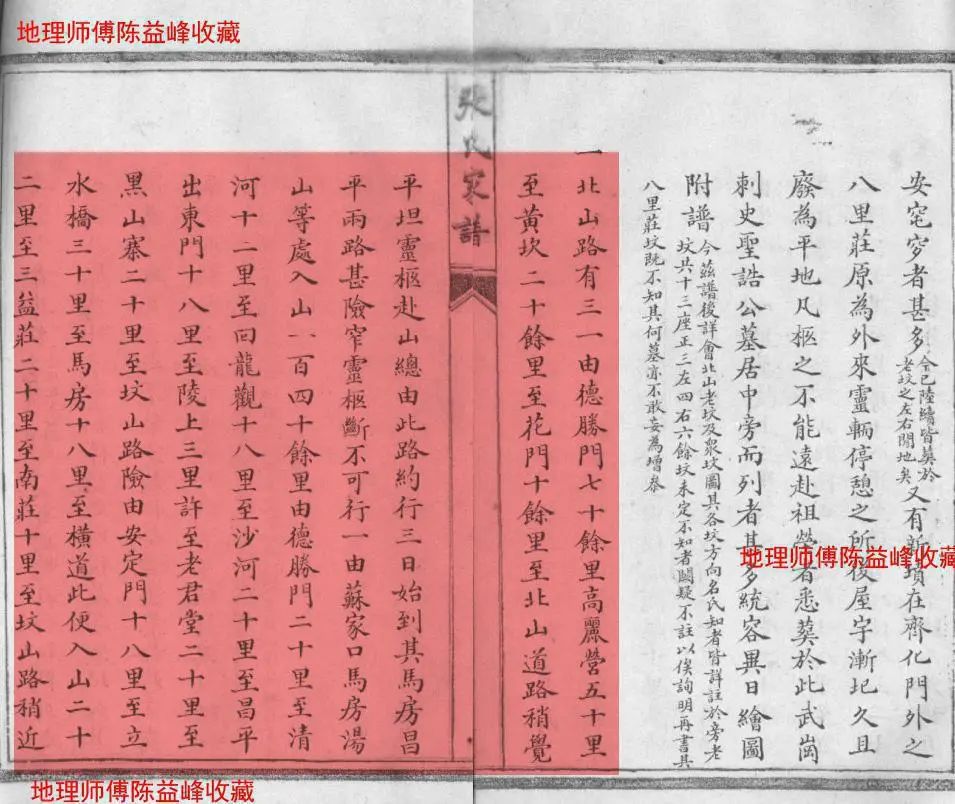 地理师傅陈益峰收藏
安窀穸者甚多今已陸續皆葬於老坟之左右閒地矣又有新塋在齊化門外之
八里莊原為外來靈輛停憩之所後屋宇漸圮久且
廢為平地凡柩之不能遠赴祖塋者悉葬於此武崗
刺史聖誥公墓居中旁而列者甚多統容異日繪圖
附譜今茲譜後詳會北山老坟及衆坟圖其各坟方向名氏知者皆詳註於旁老
坟共十三座正三左四右六餘坟未定不知者闕疑不註以俟詢明再書其
八里莊坟既不知其何墓亦不敢妄為增叅
地理师傅陈益峰收藏
一北山路有三一由德勝門七十餘里高麗營五十里
至黃坎二十餘里至花門十餘里至北山道路稍覺
張氏家譜
平坦靈柩赴山總由此路約行三日始到其馬房昌
平兩路甚險窄靈柩斷不可行一由蘇家口馬房湯
山等處入山一百四十餘里由德勝門二十里至清
河十二里至回龍觀十八里至沙河二十里至昌平
出東門十八里至陵上三里許至老君堂二十里至
黑山寨二十里至坟山路險由安定門十八里至立
水橋三十里至馬房十八里至橫道此便入山二十
二里至三益莊二十里至南莊十里至坟山路稍近
地理师傅陈益峰收藏